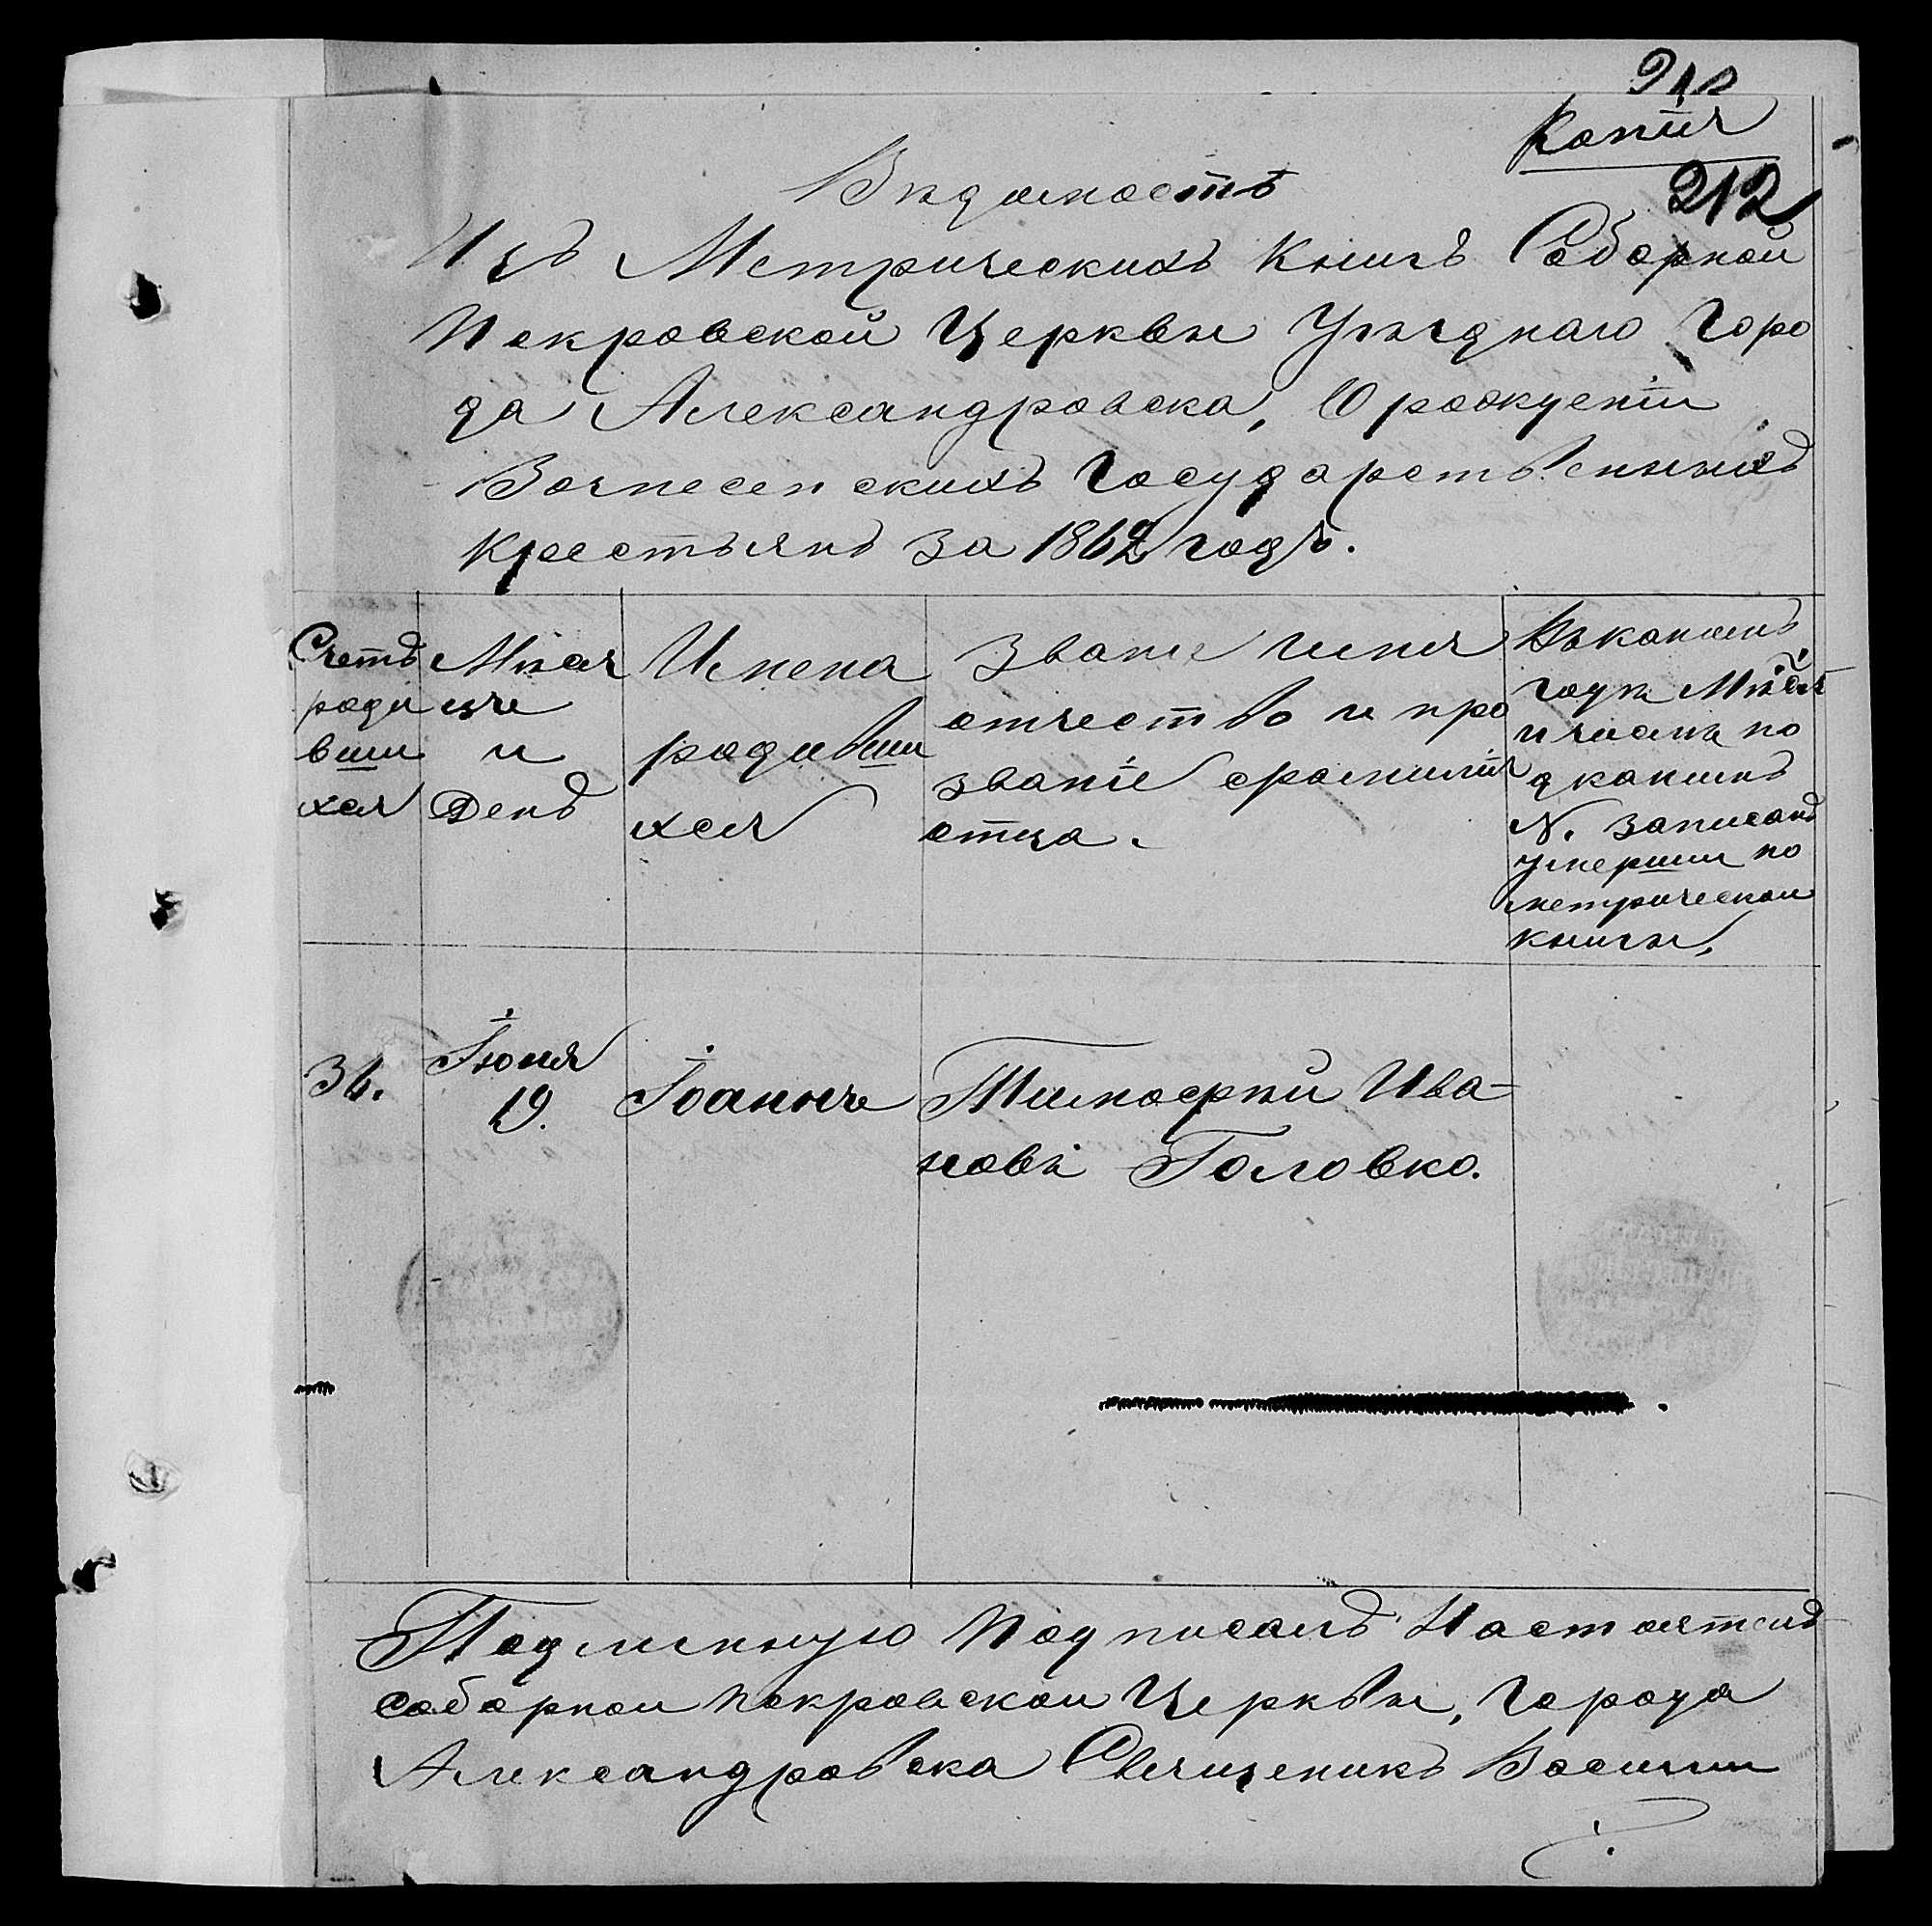 Копія
212
Вѣдомость
Изъ Метрическихъ Книгъ Соборной
Покровской Церквы Уѣзднаго Горо
да Александровска, О рожденіи
Вознесенскихъ Государственныхъ
Крестьянъ за 1862 годъ.
Счетъ
роди
вши
хся
Мѣся
цы
и
День
Имена
родивши
хся
Званіе имя
отчество и про
званіе фамилія
отца.
Въ какомъ
году Мѣсяц
и числа по
д какимъ
N. записанъ
умершим по
метрической
книги,
36.
Іюня
19.
Іоаннъ
Тимофѣй Ива-
новъ Головко.
Подлинную Подписалъ Настоятель
Соборной Покровской Церквы, Города
Александровска Священикъ Василий